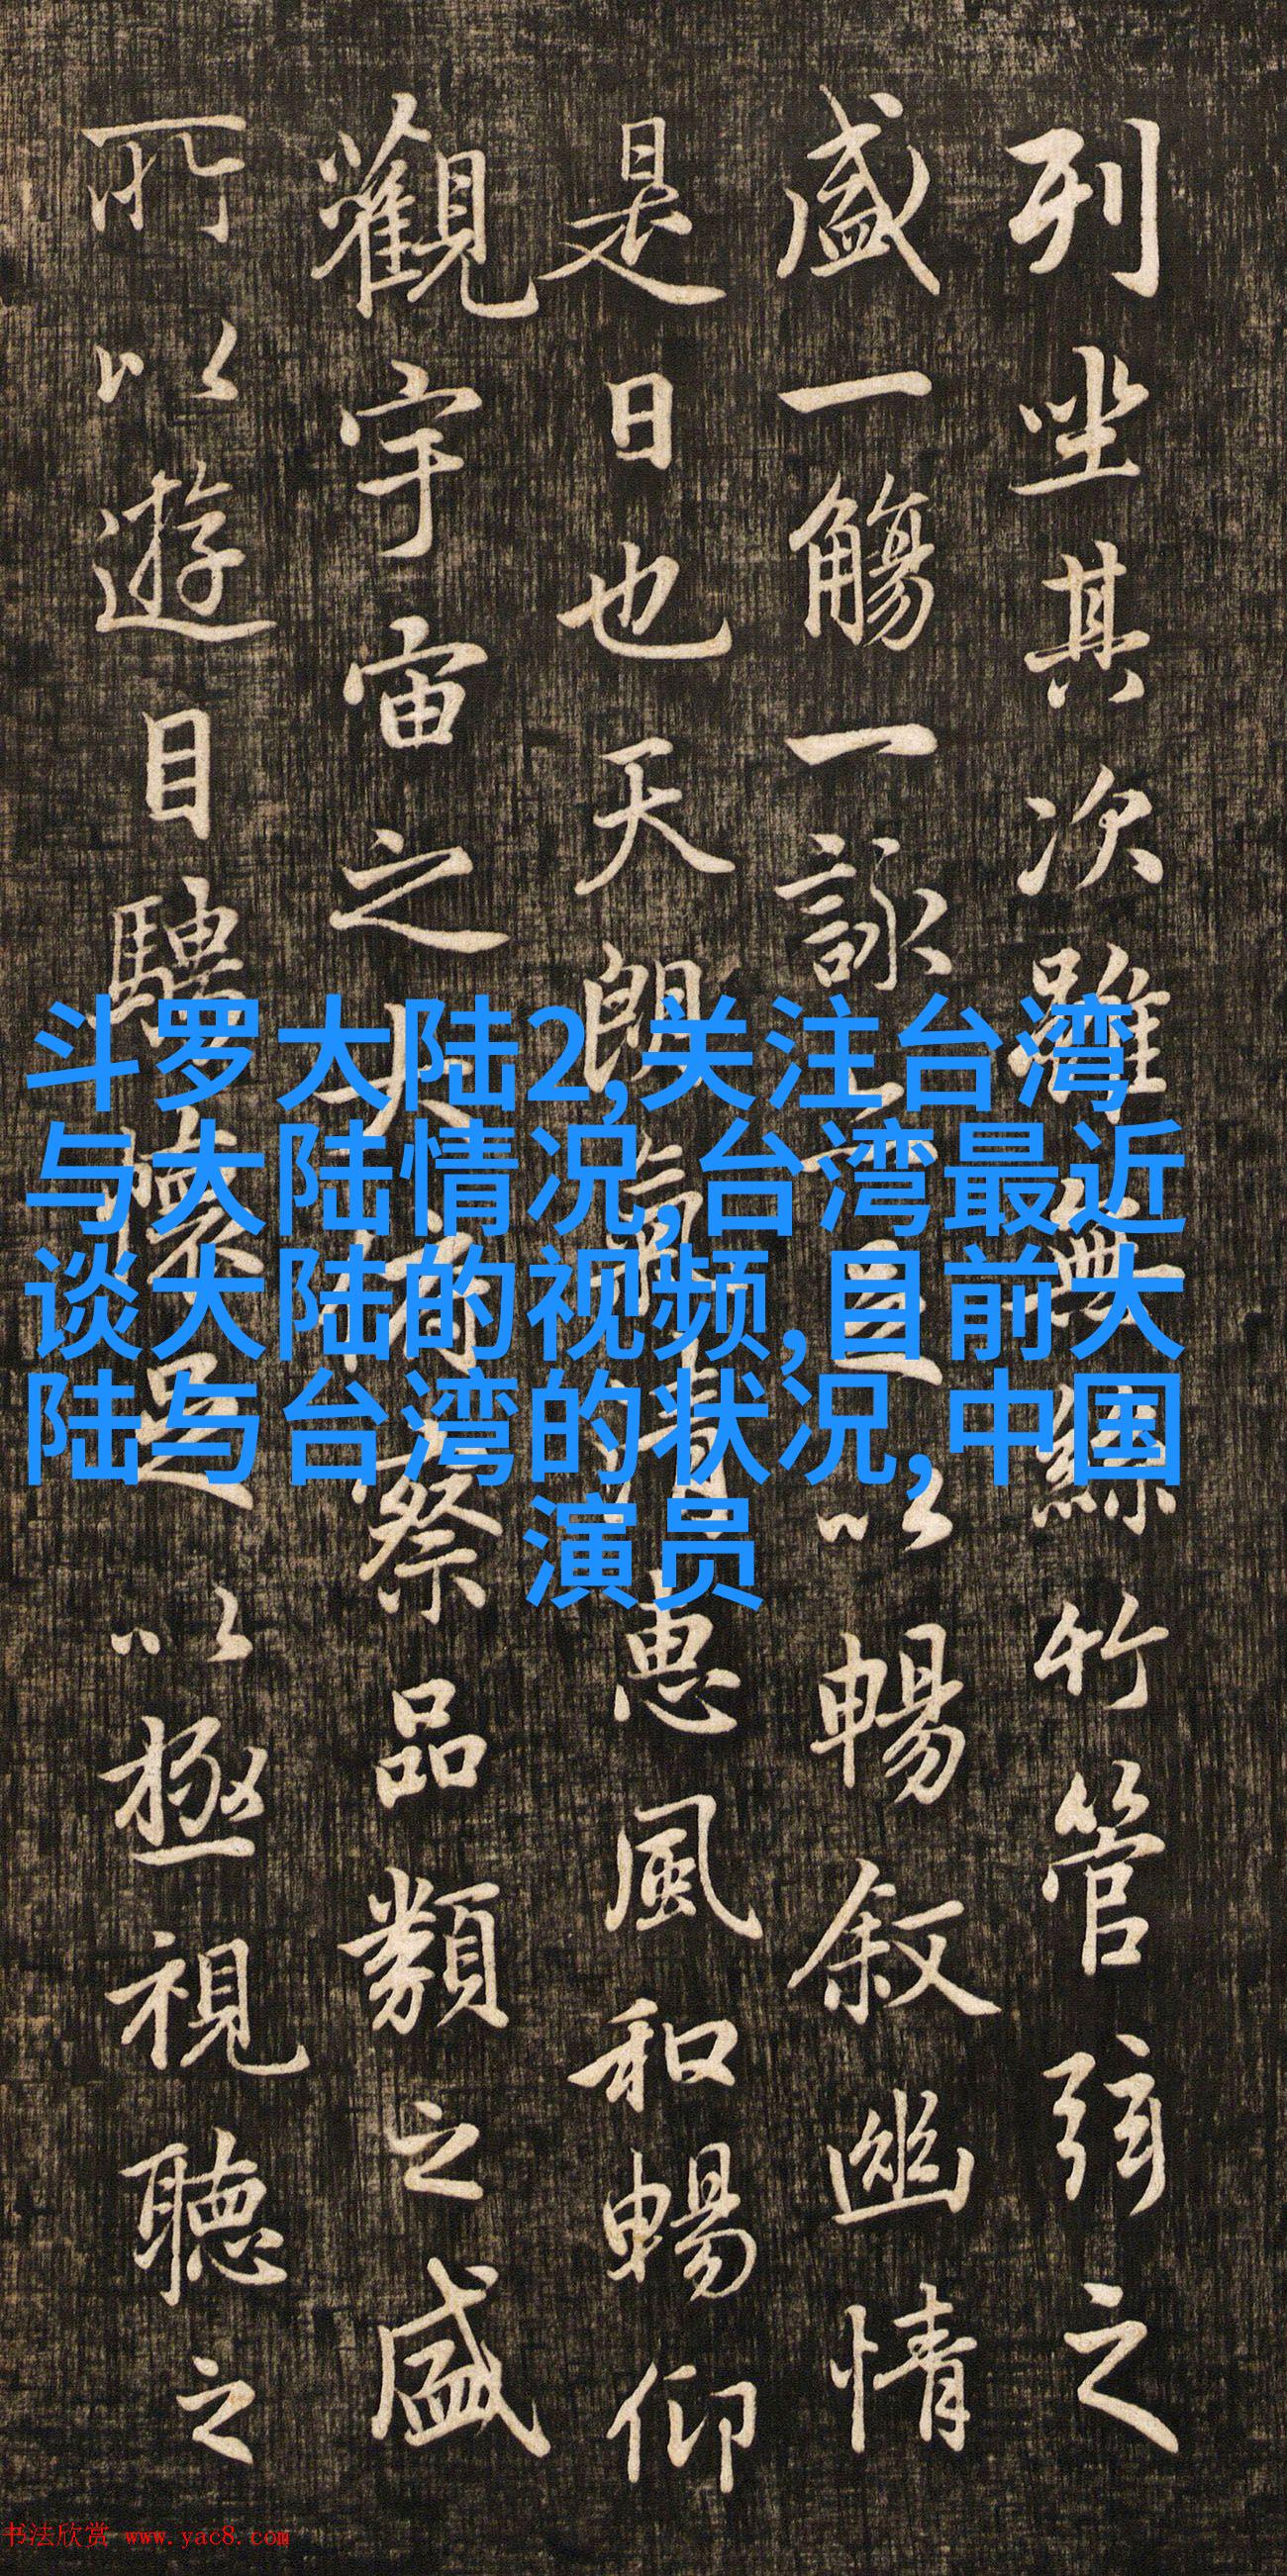 列坐其次雖無絲竹管弦之
盛一觴一詠亦足以暢叙幽情
是日也天朗氣清惠風和暢仰
觀宇宙之大俯察品類之盛
所以遊目騁懷足以極視聽之
斗罗大陆2,关注台湾
与大陆情况,台湾最近
谈大陆的视频,目前大
陆与台湾的状况,中国
演员
书法欣赏 www.yac8.com